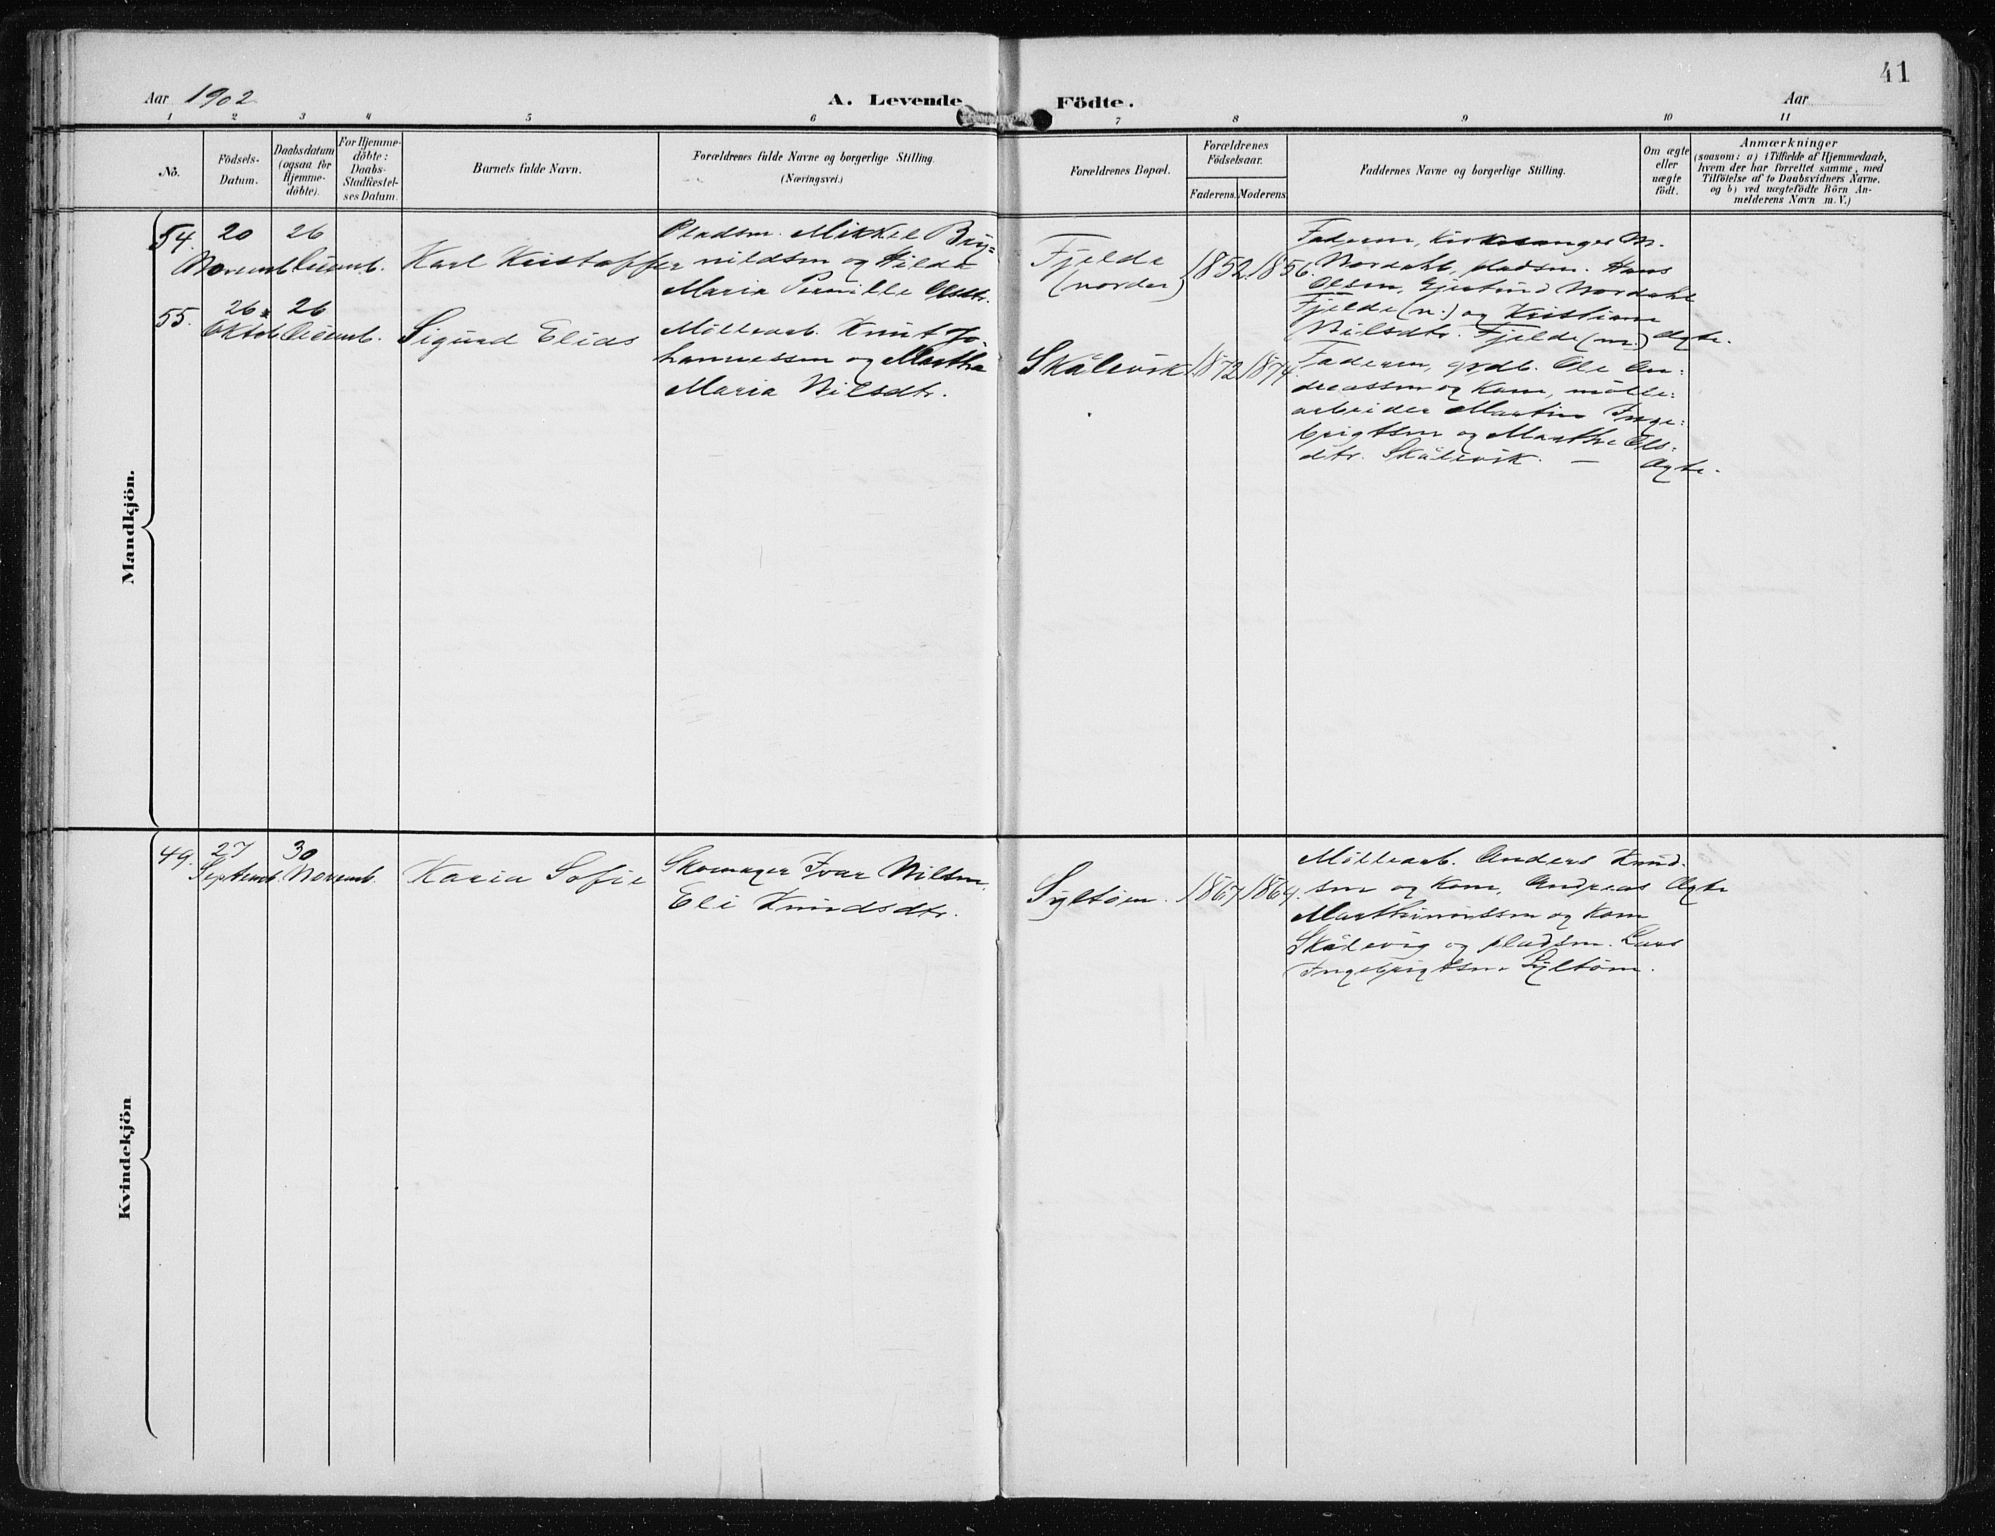 41
Aar 1902
A. Levende Födte.
Aar
1 2 3 4 5 6 7 8 9 10 11
No.
Födsels-
Datum.
Daabsdatum
(ogsaa for
Hjemme-
döbte).
For Hjemme-
döbte:
Daabs-
Stadfæstel-
ses Datum.
Barnets fulde Navn.
Forældrenes fulde Navne og borgerlige Stilling.
(Næringsvei.)
Forældrenes Bopæl.
Forældrenes
Födselsaar.
Faderens. Moderens.
Faddernes Navne og borgerlige Stilling.
Om ægte
eller
uægte
födt.
Anmærkninger
(saasom: a) i Tilfælde af Hjemmedaab,
hvem der har forrettet samme, med
Tilföielse af to Daabsvidners Navne,
og b) ved uægtefödte Börn An-
melderens Navn m. V.)
Mandkjön.
54.
20
Novemb.
26
Decemb.
Karl Kristoffer
Pladsm. Mikkel Bry-
nildsen og Hilda
Maria Pernille Olsdtr.
Fjelde
(nordre)
1852. 1856.
Faderen, Kirkesanger N.
Nordahl, pladsm. Hans
Olsen, Gjertrud Nordahl
Fjelde (n.) og Kristiane
Nilsdtr. Fjelde (nr.)
Ægte.
55.
26
Oktob.
26
Decemb.
Sigurd Elias
Møllearb. Knut Jo-
hannessen og Martha
Maria Nilsdtr.
Skålevik
1872 1874.
Faderen, grdb. Ole An-
dreassen og Kone, mølle-
arbeider Martin Inge-
brigtsen og Marthe Ols-
dtr. Skålevik. —
Ægte.
Kvindekjön
49.
27
Septemb.
30
Novemb.
Karia Sofie
Skomager Ivar Nilsen,
Eli Knudsdtr.
Syltøen.
1867 1869.
Møllearb. Anders Knud-
sen og Kone, Andreas
Marthinussen og Kone
Skålevig og pladsm. Lars
Ingebrigtsen Syltøen.
Ægte